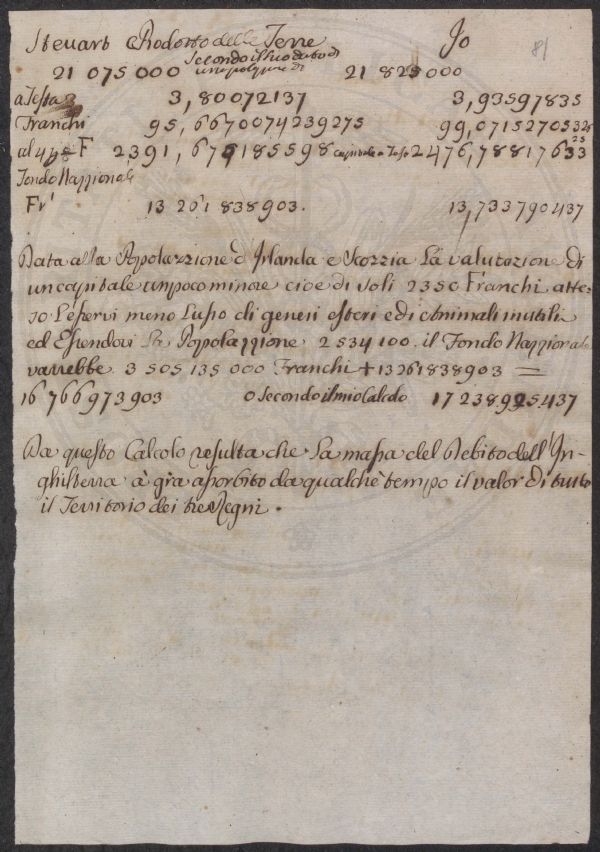 Steuart Prodotto delle Terre Jo 81
Secondo il suo dato di
21 075 000 una popolazione di 21 825 000
a Testa 3,80072137 3,93597835
Franchi 95,6670074239275 99,071527053325
al 4 p F 2391,676185598 capitale a Testa 2476,7881763325
Fondo Nazzionale
Fr' 13 261 838903. 13,733790437
Data alla Popolazzione d'Irlanda e Scozzia La valutazione di
un capitale un poco minore cioe di soli 2350 Franchi atte-
so L'esservi meno Lusso di generi esteri e di Animali inutili
ed Essendovi La Popolazzione 2 534 100. il Fondo Nazzionale
varrebbe 3 505 135 000 Franchi + 13261838903 =
16 766973903 o secondo il mio Calcolo 17238925437
Da questo Calcolo resulta che La massa del Debito dell'In-
ghilterra à gia assorbito da qualche tempo il valor di tutto
il Territorio dei tre Regni.